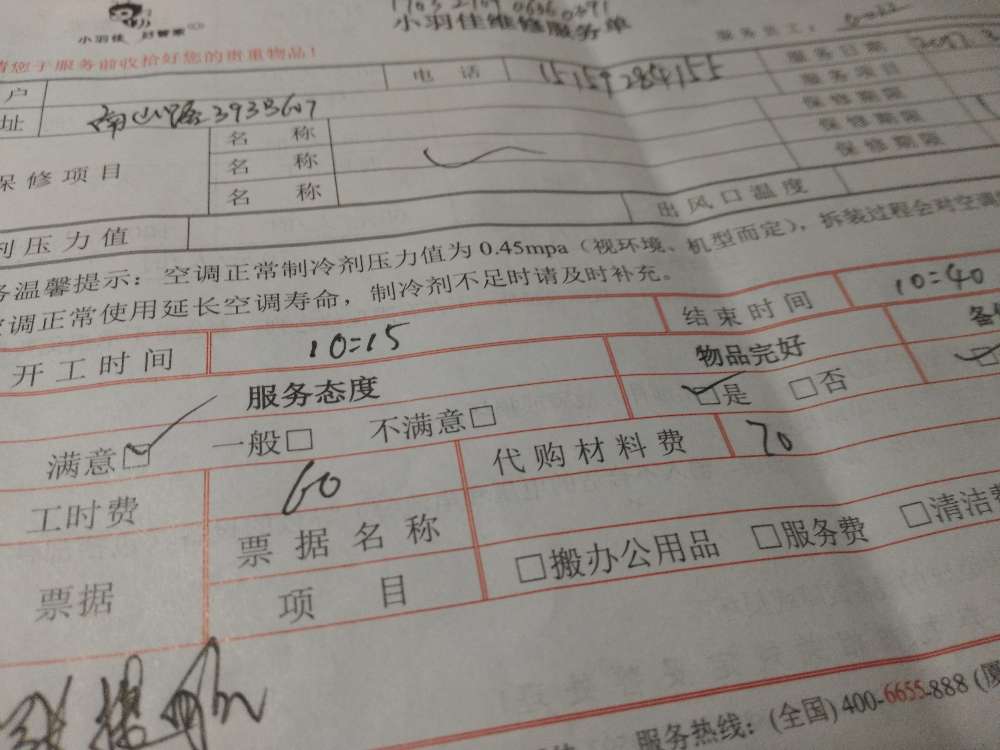 小羽佳 好管家
小羽佳维修服务单
请您于服务前收拾好您的贵重物品！
服务员工：
户
电 话
15159284155
服务日期
址
南山路393号607
服务项目
保修项目
名 称
保修期限
名 称
保修期限
名 称
保修期限
剂压力值
出风口温度
务温馨提示：空调正常制冷剂压力值为 0.45mpa（视环境、机型而定），拆装过程会对空调
空调正常使用延长空调寿命，制冷剂不足时请及时补充。
开工时间
10:15
结束时间
10:40
服务态度
物品完好
满意☑ 一般□ 不满意□
☑是 □否
工时费
60
代购材料费
70
票据
票据名称
项 目
□搬办公用品 □服务费 □清洁费
服务热线：(全国) 400-6655-888 (厦